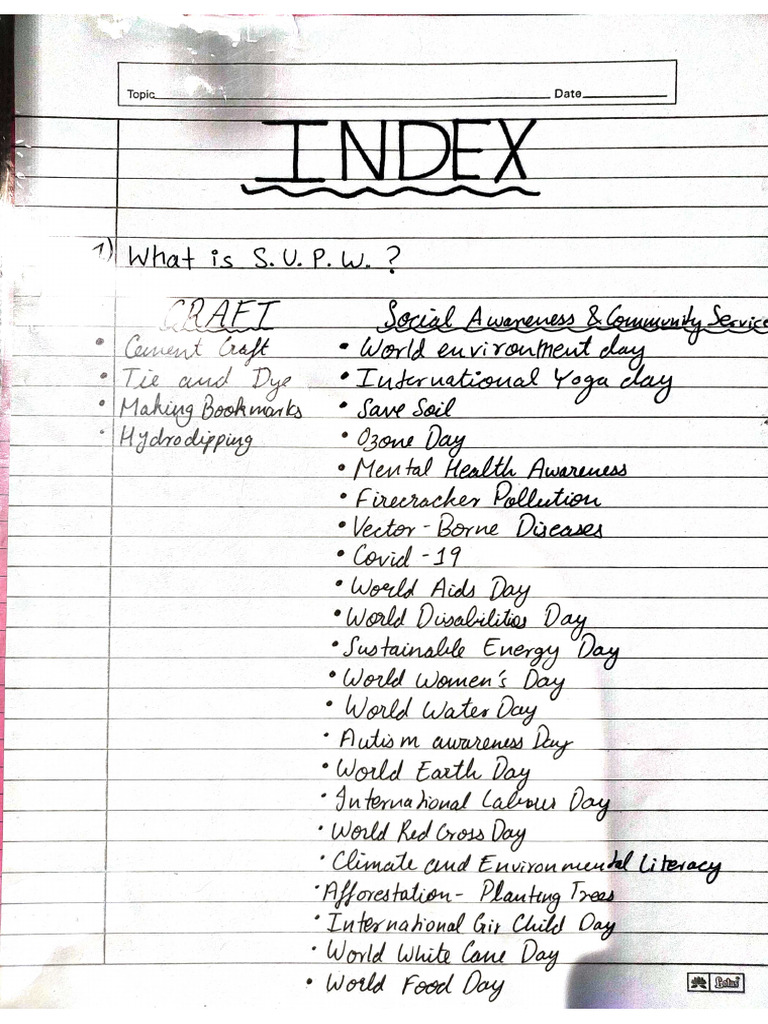 Topic Date
INDEX
1) What is S.U.P.W.?
CRAFT
• Cement Craft
• Tie and Dye
• Making Bookmarks
• Hydrodipping
Social Awareness & Community Service
• World environment day
• International Yoga day
• Save Soil
• Ozone Day
• Mental Health Awareness
• Firecracker Pollution
• Vector-Borne Diseases
• Covid-19
• World Aids Day
• World Disabilities Day
• Sustainable Energy Day
• World Women's Day
• World Water Day
• Autism awareness Day
• World Earth Day
• International Labour Day
• World Red Cross Day
• Climate and Environmental Literacy
• Afforestation- Planting Trees
• International Gir Child Day
• World White Cane Day
• World Food Day
Lotus